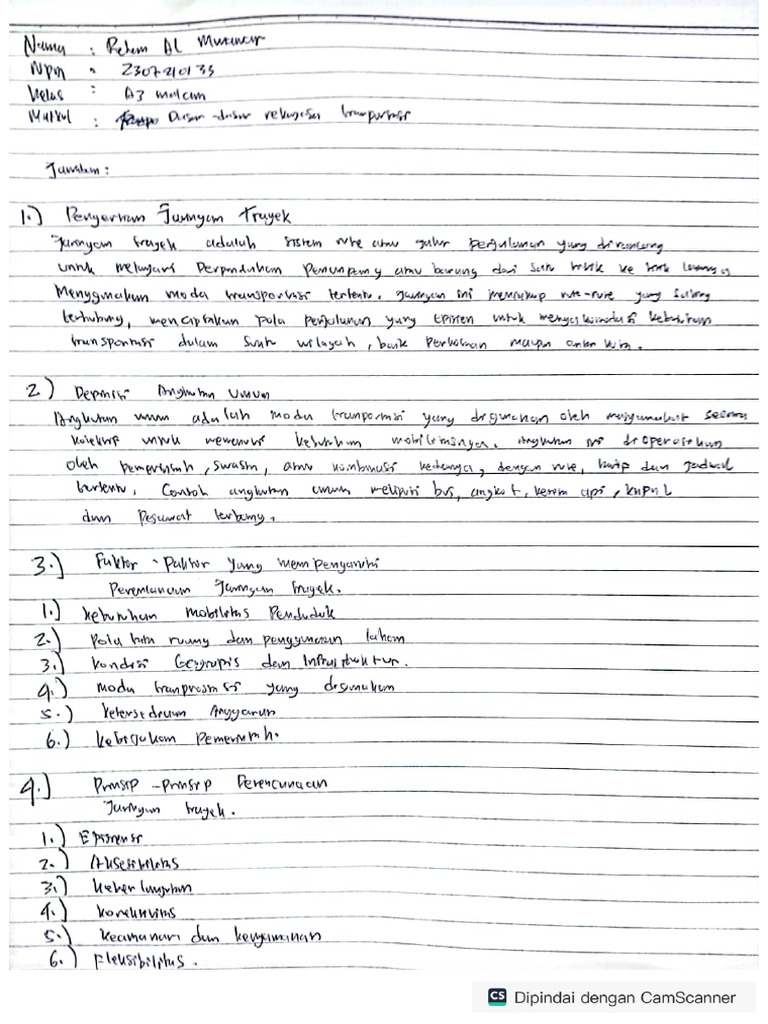 Nama :
NPM : 2307210133
Kelas : A3 malam
Matkul : Dasar-dasar rekayasa transportasi
Jawaban :
1.) Pengertian Jaringan Trayek
Jaringan trayek adalah sistem rute atau jalur perjalanan yang dirancang
untuk melayani Perpindahan Penumpang atau barang dari satu titik ke titik lainnya
Menggunakan moda transportasi tertentu. Jaringan ini mencakup rute-rute yang saling
terhubung, menciptakan pola perjalanan yang Efisien untuk mengakomodasi kebutuhan
transportasi dalam Suatu wilayah, baik Perkotaan maupun antar kota.
2.) Definisi Angkutan Umum
Angkutan umum adalah moda transportasi yang digunakan oleh masyarakat secara
kolektif untuk memenuhi kebutuhan mobilitasnya. Angkutan ini dioperasikan
oleh pemerintah, swasta, atau kombinasi keduanya, dengan rute, tarip dan jadwal
tertentu. Contoh angkutan umum meliputi bus, angkot, kereta api, kapal
dan Pesawat terbang.
3.) Faktor-Faktor yang mempengaruhi
Perencanaan Jaringan trayek.
1.) kebutuhan mobilitas Penduduk
2.) Pola tata ruang dan penggunaan lahan
3.) kondisi Geografis dan Infrastruktur.
4.) moda transportasi yang digunakan
5.) ketersediaan Anggaran
6.) kebijakan Pemerintah.
4.) Prinsip-Prinsip Perencanaan
Jaringan trayek.
1.) Efisiensi
2.) Aksesibilitas
3.) keberlanjutan
4.) konektivitas
5.) keamanan dan kenyamanan
6.) fleksibilitas.
CS Dipindai dengan CamScanner